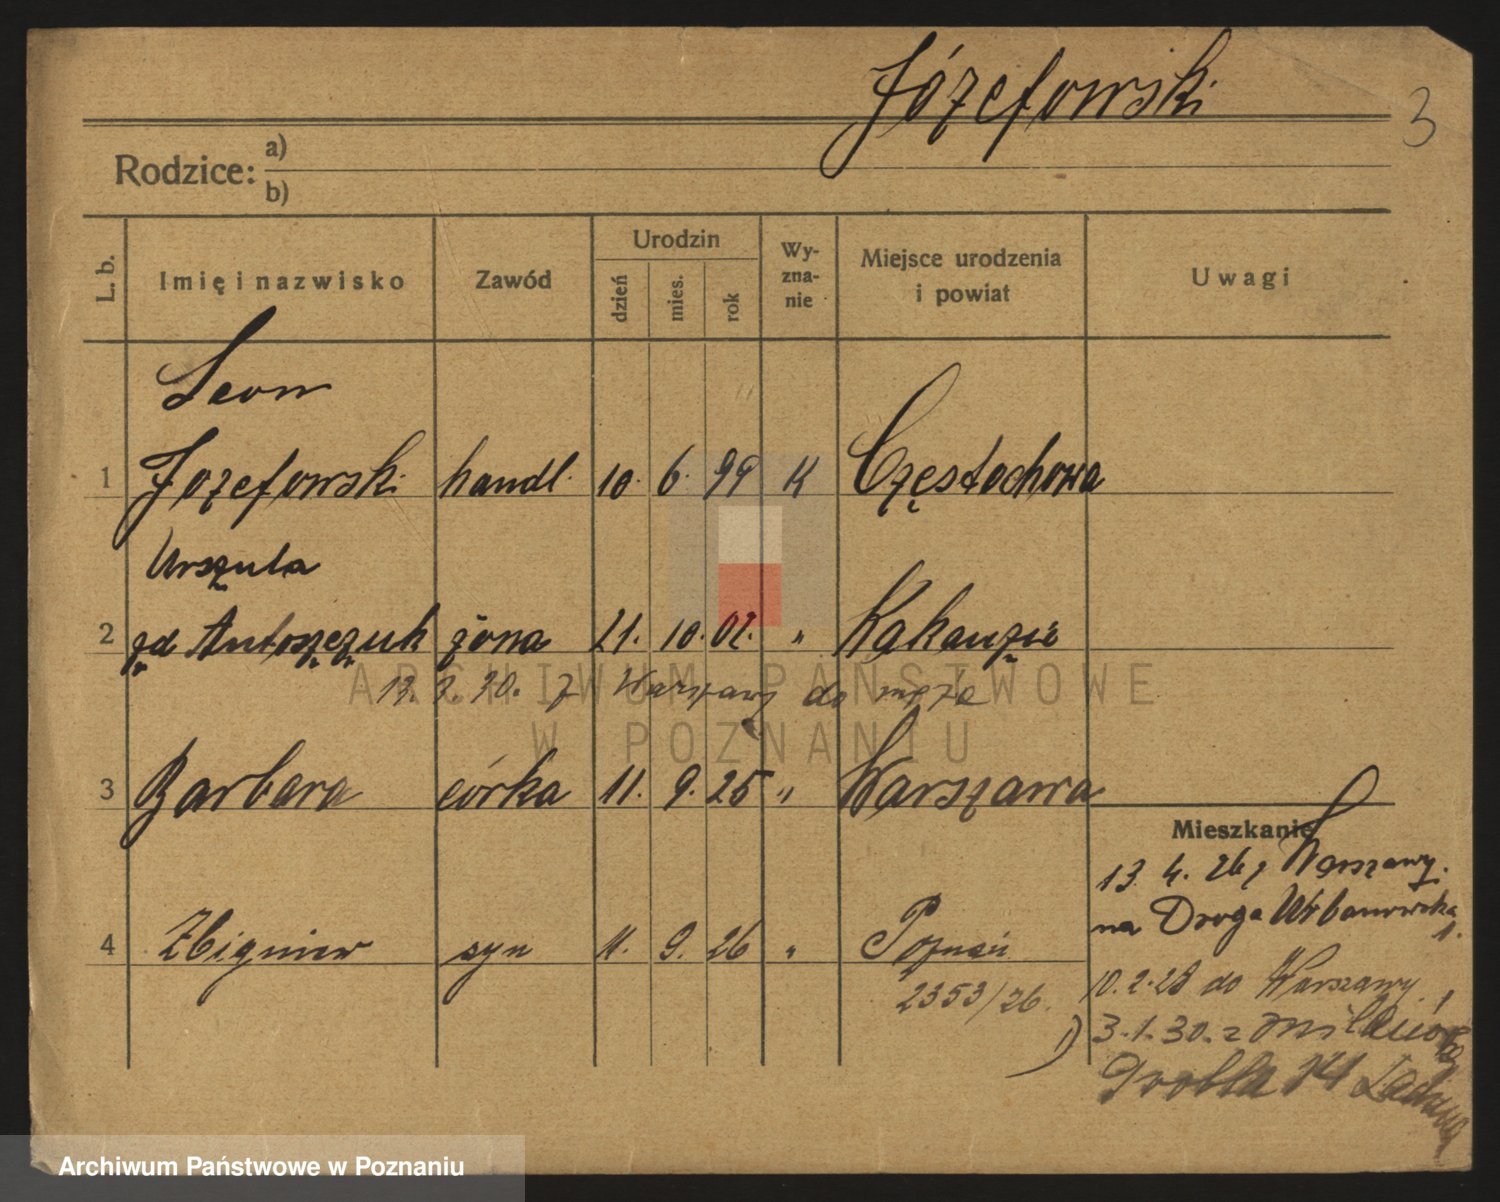 Józefowski
3
Rodzice: a)
b)
L. b.
Imię i nazwisko
Zawód
Urodzin
dzień
mies.
rok
Wy-
zna-
nie
Miejsce urodzenia
i powiat
Uwagi
Leon
1 Jozefowski handl. 10. 6. 99 K Częstochowa
Urszula
2 zd Antoszczuk żona 21. 10. 02. "
z Warszawy do męża
3 Barbara córka 11. 9. 25 " Warszawa
4 Zbigniew syn 11. 9. 26 " Poznań
2353/26.
Mieszkanie
13. 4. 26 z Warszawy.
na Droga Urbanowska
1.
10. 2. 28 do Warszawy
1) 3. 1. 30. z
Grobla
ARCHIWUM PAŃSTWOWE
W POZNANIU
Archiwum Państwowe w Poznaniu